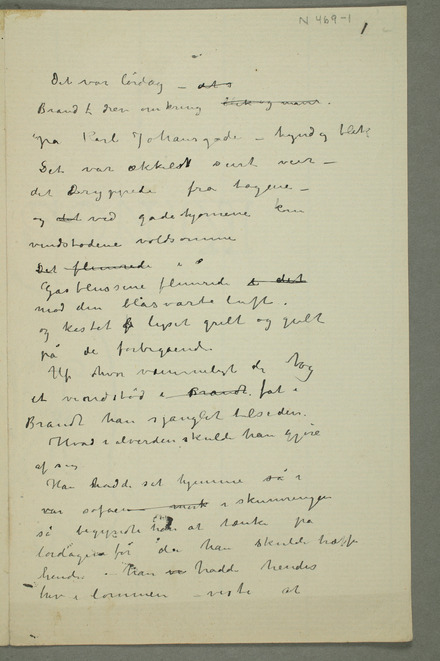 N 469-1
1
Det var lördag –
Brandt drev omkring
på Karl Johansgade – tynd og blek
Det var ækkelt surt veir –
det dryppede fra tagene –
og ved gadehjørnerne kom
vindstødene voldsomme
Det flimrede
Gasblussene flimrede
mod den blåsvarte luft.
og kastet lyset gult og gult
på de forbigående.
Uf hvor væmmeligt og tog
et vindstød i Brandt fat i
Brandt han sjanglet tilside.
Hvad i alverden skulde han gjøre
af sig
Han hadde set hjemme så i
var sofaen mørk i skumringen
så begyndte han at tænke på
lördagen før da han skulde træffe
hende – han hadde hendes
brev i lommen – viste at